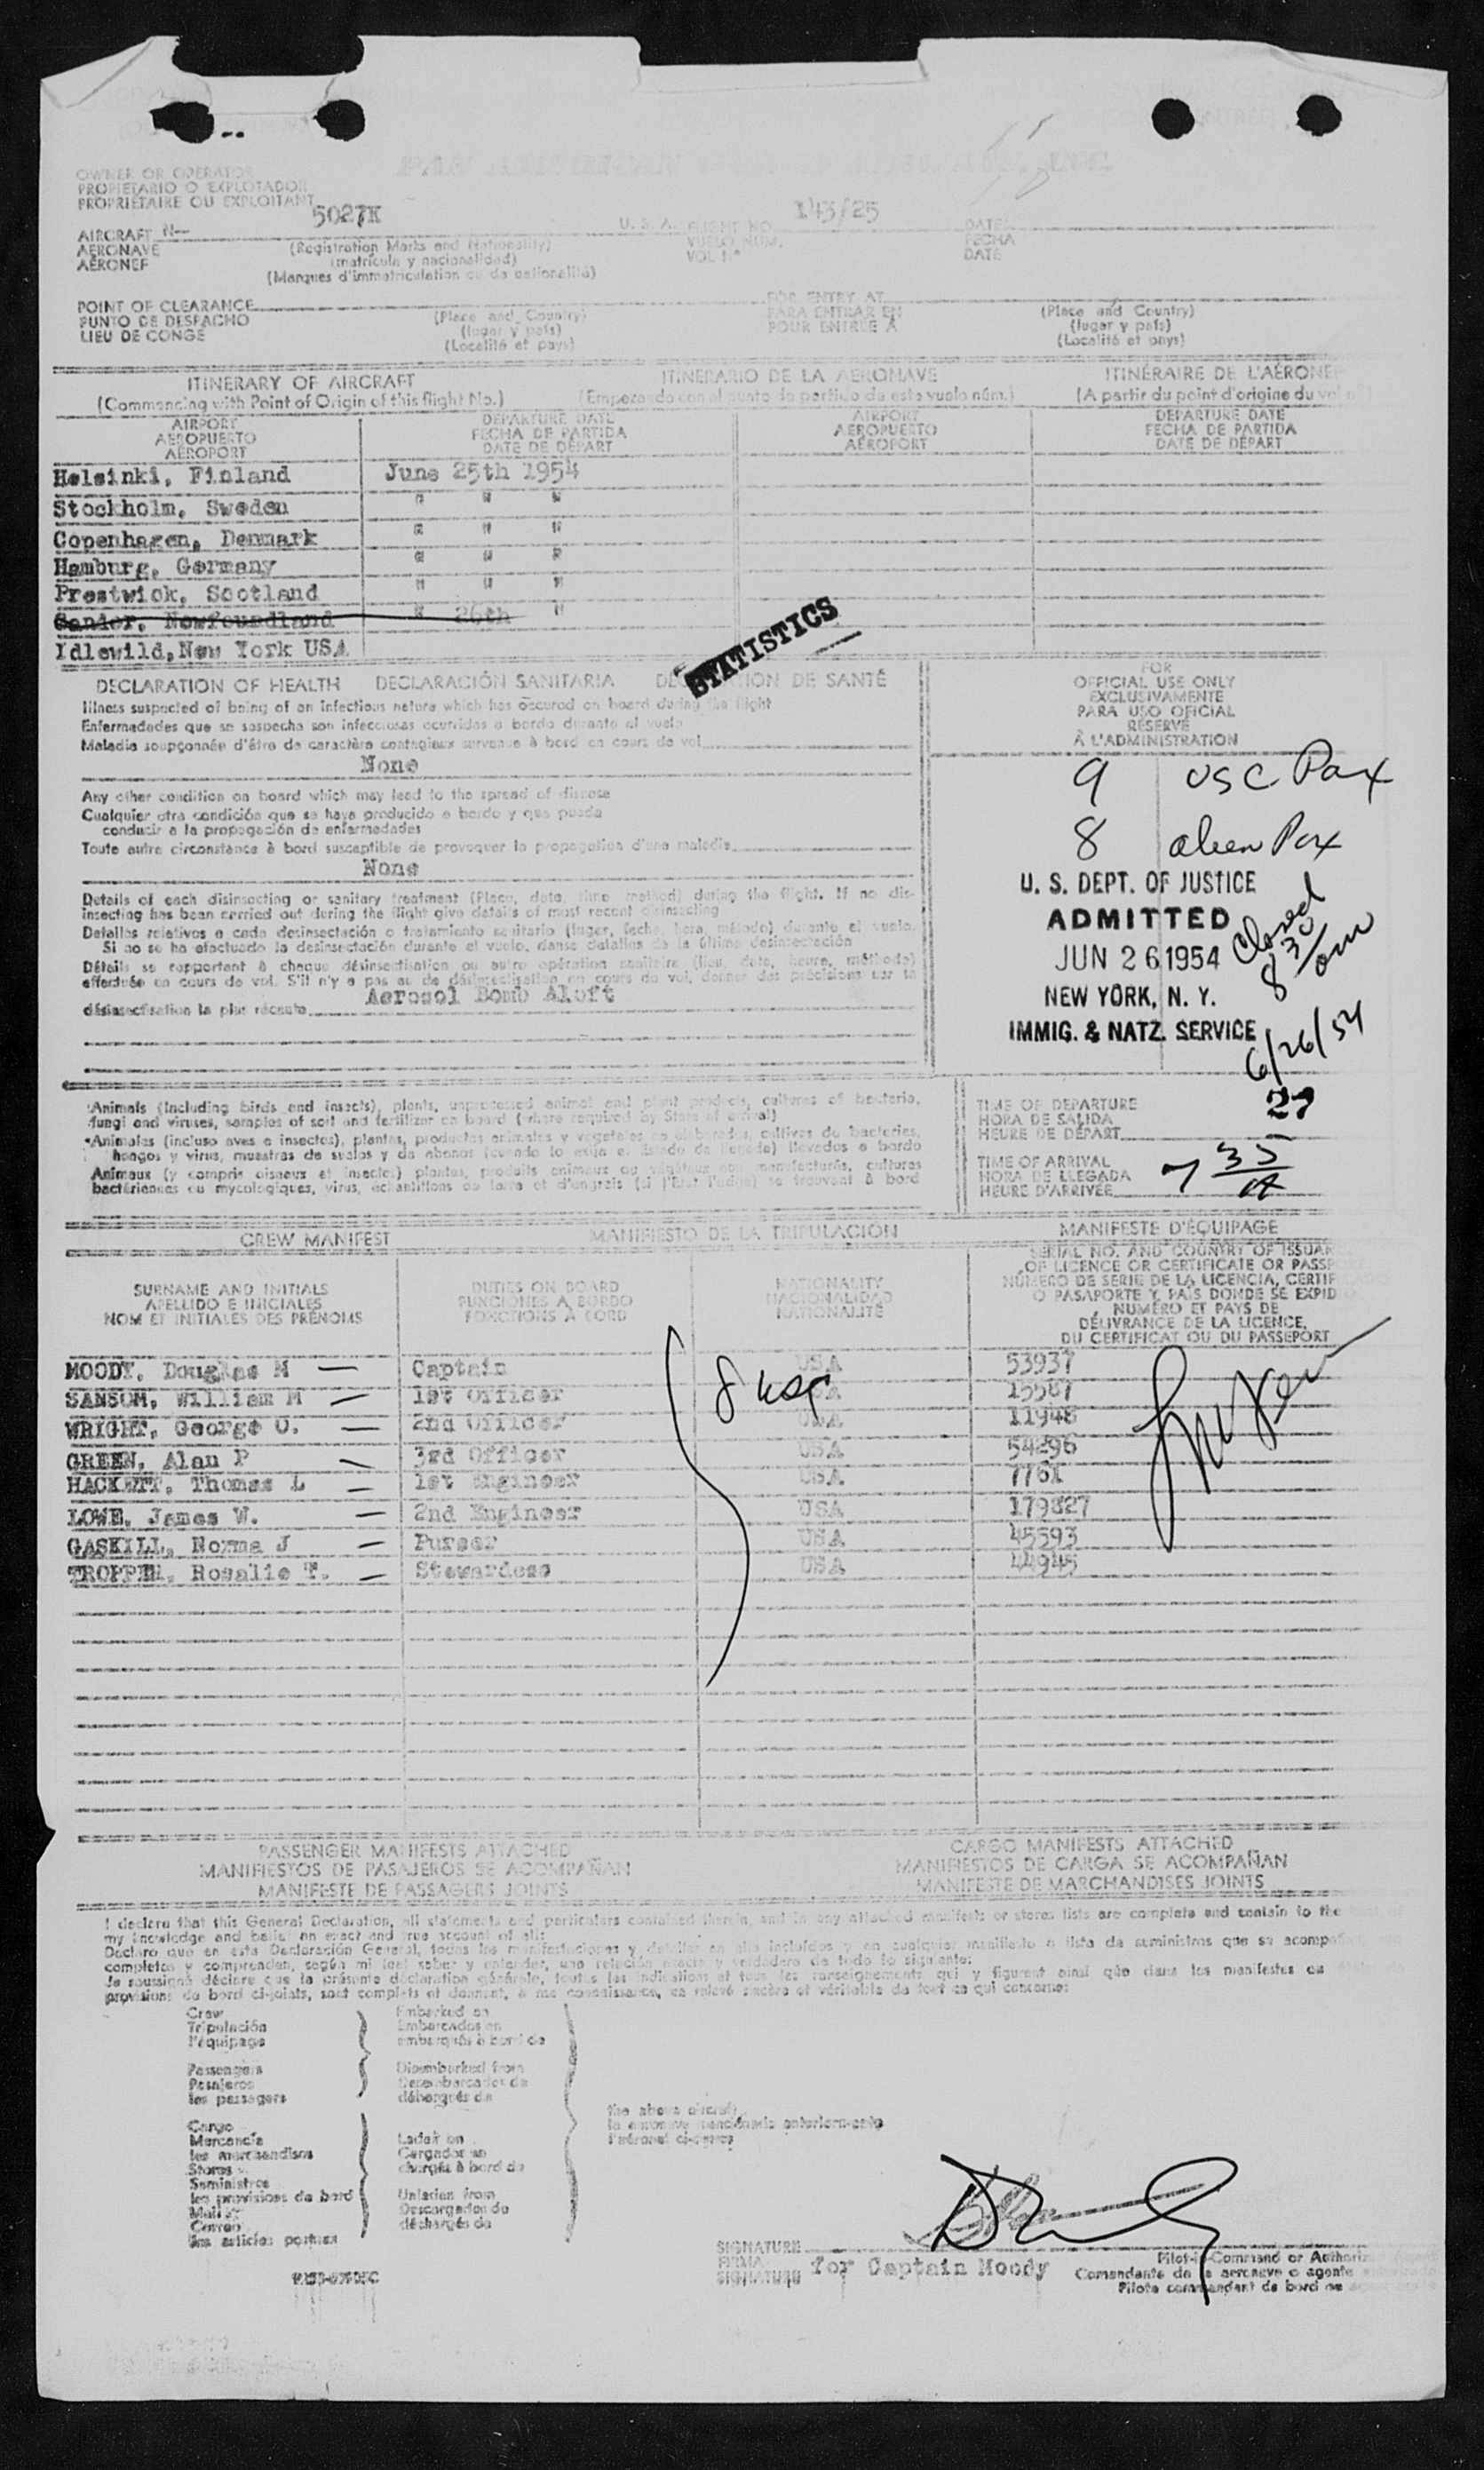 OWNER OR OPERATOR
PROPIETARIO O EXPLOTADOR
PROPRIÉTAIRE OU EXPLOITANT
AIRCRAFT N- 5027K U. S. A. FLIGHT NO. 143/25 DATE
AERONAVE (Registration Marks and Nationality) VUELO NUM. FECHA
AÉRONEF (matrícula y nacionalidad) VOL N° DATE
(Marques d'immatriculation et de nationalité)
POINT OF CLEARANCE (Place and Country) FOR ENTRY AT (Place and Country)
PUNTO DE DESPACHO (lugar y país) PARA ENTRAR EN (lugar y país)
LIEU DE CONGE (Localité et pays) POUR ENTRÉE À (Localité et pays)
ITINERARY OF AIRCRAFT ITINERARIO DE LA AERONAVE ITINÉRAIRE DE L'AÉRONEF
(Commencing with Point of Origin of this flight No.) (Empezando con el punto de partida de este vuelo núm.) (A partir du point d'origine du vol
AIRPORT DEPARTURE DATE AIRPORT DEPARTURE DATE
AEROPUERTO FECHA DE PARTIDA AEROPUERTO FECHA DE PARTIDA
AÉROPORT DATE DE DÉPART AÉROPORT DATE DE DÉPART
Helsinki, Finland June 25th 1954
Stockholm, Sweden " " "
Copenhagen, Denmark " " "
Hamburg, Germany " " "
Prestwick, Scotland " " "
Gander, Newfoundland " 26th "
Idlewild, New York USA
STATISTICS
DECLARATION OF HEALTH DECLARACIÓN SANITARIA DÉCLARATION DE SANTÉ
Illness suspected of being of an infectious nature which has occured on board during the flight
Enfermedades que se sospecha son infecciosas ocurridas a bordo durante el vuelo
Maladie soupçonnée d'être de caractère contagieux survenue à bord en cours de vol
None
Any other condition on board which may lead to the spread of disease
Cualquier otra condición que se haya producido a bordo y que pueda
conducir a la propagación de enfermedades
Toute autre circonstance à bord susceptible de provoquer la propagation d'une maladie
None
Details of each disinsecting or sanitary treatment (Place, date, time method) during the flight. If no dis-
insecting has been carried out during the flight give details of most recent disinsecting
Detalles relativos a cada desinsectación o tratamiento sanitario (lugar, fecha, hora, método) durante el vuelo.
Si no se ha efectuado la desinsectación durante el vuelo, danse detalles de la última desinsectación
Détails se rapportant à chaque désinsectisation ou autre opération sanitaire (lieu, date, heure, méthode)
effectuée en cours de vol. S'il n'y a pas eu de désinsectisation en cours de vol, donner des précisions sur la
désinsectisation la plus récente Aerosol Bomb Aloft
FOR
OFFICIAL USE ONLY
EXCLUSIVAMENTE
PARA USO OFICIAL
RÉSERVÉ
À L'ADMINISTRATION
9 USC Pax
8 alien Pax
U. S. DEPT. OF JUSTICE
ADMITTED
JUN 26 1954
NEW YORK, N. Y.
IMMIG. & NATZ. SERVICE
Closed
8 30 am
6/26/54
Animals (Including birds and insects), plants, unprocessed animal and plant products, cultures of bacteria,
fungi and viruses, samples of soil and fertilizer on board (where required by State of arrival)
Animales (incluso aves e insectos), plantas, productos animales y vegetales no elaborados, cultivos de bacterias,
hongos y virus, muestras de suelos y de abonos (cuando lo exija el Estado de llegada) llevados a bordo
Animaux (y compris oiseaux et insectes) plantes, produits animaux ou végétaux non manufacturés, cultures
bactériennes ou mycologiques, virus, échantillons de terre et d'engrais (si l'Etat l'exige) se trouvant à bord
TIME OF DEPARTURE
HORA DE SALIDA
HEURE DE DÉPART
TIME OF ARRIVAL
HORA DE LLEGADA 7 35 A
HEURE D'ARRIVÉE
CREW MANIFEST MANIFIESTO DE LA TRIPULACIÓN MANIFESTE D'ÉQUIPAGE
SURNAME AND INITIALS DUTIES ON BOARD NATIONALITY SERIAL NO. AND COUNTRY OF ISSUAN
APELLIDO E INICIALES FUNCIONES A BORDO NACIONALIDAD OF LICENCE OR CERTIFICATE OR PASSP
NOM ET INITIALES DES PRÉNOMS FONCTIONS À BORD NATIONALITÉ NÚMERO DE SERIE DE LA LICENCIA, CERTIF
O PASAPORTE Y PAÍS DONDE SE EXPID
NUMÉRO ET PAYS DE
DÉLIVRANCE DE LA LICENCE,
DU CERTIFICAT OU DU PASSEPORT
MOODY, Douglas M Captain USA 53937
SANSOM, William M 1st Officer USA 15587
WRIGHT, George O. 2nd Officer USA 11948
GREEN, Alan P 3rd Officer USA 54296
HACKETT, Thomas L 1st Engineer USA 7761
LOWE, James W. 2nd Engineer USA 179827
GASKILL, Norma J Purser USA 45593
TROPPER, Rosalie T. Stewardess USA 44945
8
PASSENGER MANIFESTS ATTACHED CARGO MANIFESTS ATTACHED
MANIFIESTOS DE PASAJEROS SE ACOMPAÑAN MANIFIESTOS DE CARGA SE ACOMPAÑAN
MANIFESTE DE PASSAGERS JOINTS MANIFESTE DE MARCHANDISES JOINTS
I declare that this General Declaration, all statements and particulars contained therein, and in any attached manifests or stores lists are complete and contain to the
my knowledge and belief an exact and true account of all:
Declaro que en esta Declaración General, todas las manifestaciones y detalles en ella incluídos y en cualquier manifiesto o lista de suministros que se acompa
completos y comprenden, según mi leal saber y entender, una relación exacta y verdadera de todo lo siguiente:
Je soussigné déclare que la présente déclaration générale, toutes les indications et tous les renseignements qui y figurent ainsi que dans les manifestes ou
provisions de bord ci-joints, sont complets et donnent, à ma connaissance, un relevé sincère et véritable de tout ce qui concerne:
Crew Embarked on
Tripulación Embarcados en
l'équipage embarqués à bord de
Passengers Disembarked from
Pasajeros Desembarcados de
les passagers débarqués de
the above aircraft
la aeronave mencionada anteriormente
l'aéronef ci-dessus
Cargo
Mercancía Laden on
les marchandises Cargador en
Stores chargés à bord de
Suministros
les provisions de bord Unladen from
Mail Descargados de
Correo déchargés de
les articles postaux
SIGNATURE Pilot-in-Command or Authori
FIRMA for Captain Moody Comandante de la aeronave o agente
SIGNATURE Pilote commandant de bord ou